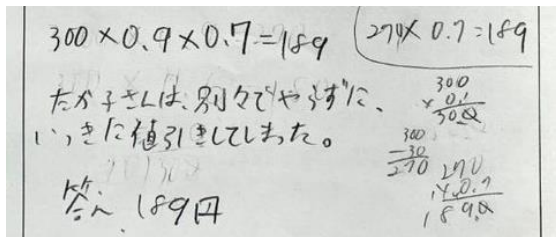 300×0.9×0.7=189
270×0.7=189
たか子さんは、別々でやらずに、
いっきに値引きしてしまった。
答え 189円
300
×0.1
30.0
300
-30
270
270
×0.7
189.0